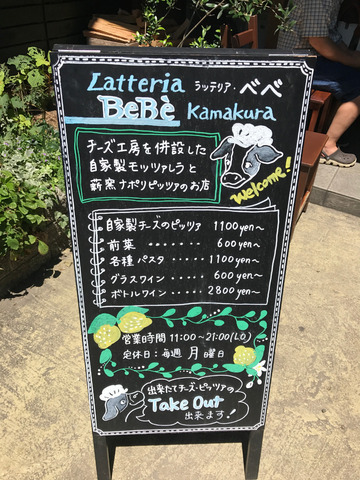 Latteria ラッテリア・べべ
BeBè Kamakura
チーズ工房を併設した
自家製モッツァレラと
薪窯ナポリピッツァのお店
Welcome!
自家製チーズのピッツァ 1100yen〜
前菜 ・・・・・・・ 600yen〜
各種パスタ ・・・・・ 1100yen〜
グラスワイン ・・・・ 600yen〜
ボトルワイン ・・・・ 2800yen〜
営業時間 11:00〜21:00(LO)
定休日:毎週 月曜日
出来たてチーズ・ピッツァの
Take Out
出来ます!